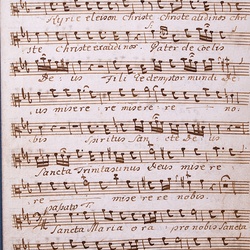 Kyrie eleison Christe Christe exaudi nos Chri
ste Christe exaudi nos Pater de coelis
De us Fili Redemptor mundi De
us misere re misere re no
bis Spiritus San cte De us
Sancta Trinitas unus Deus misere
re misere re nobis.
Sancta Maria ora pro nobis Sancta